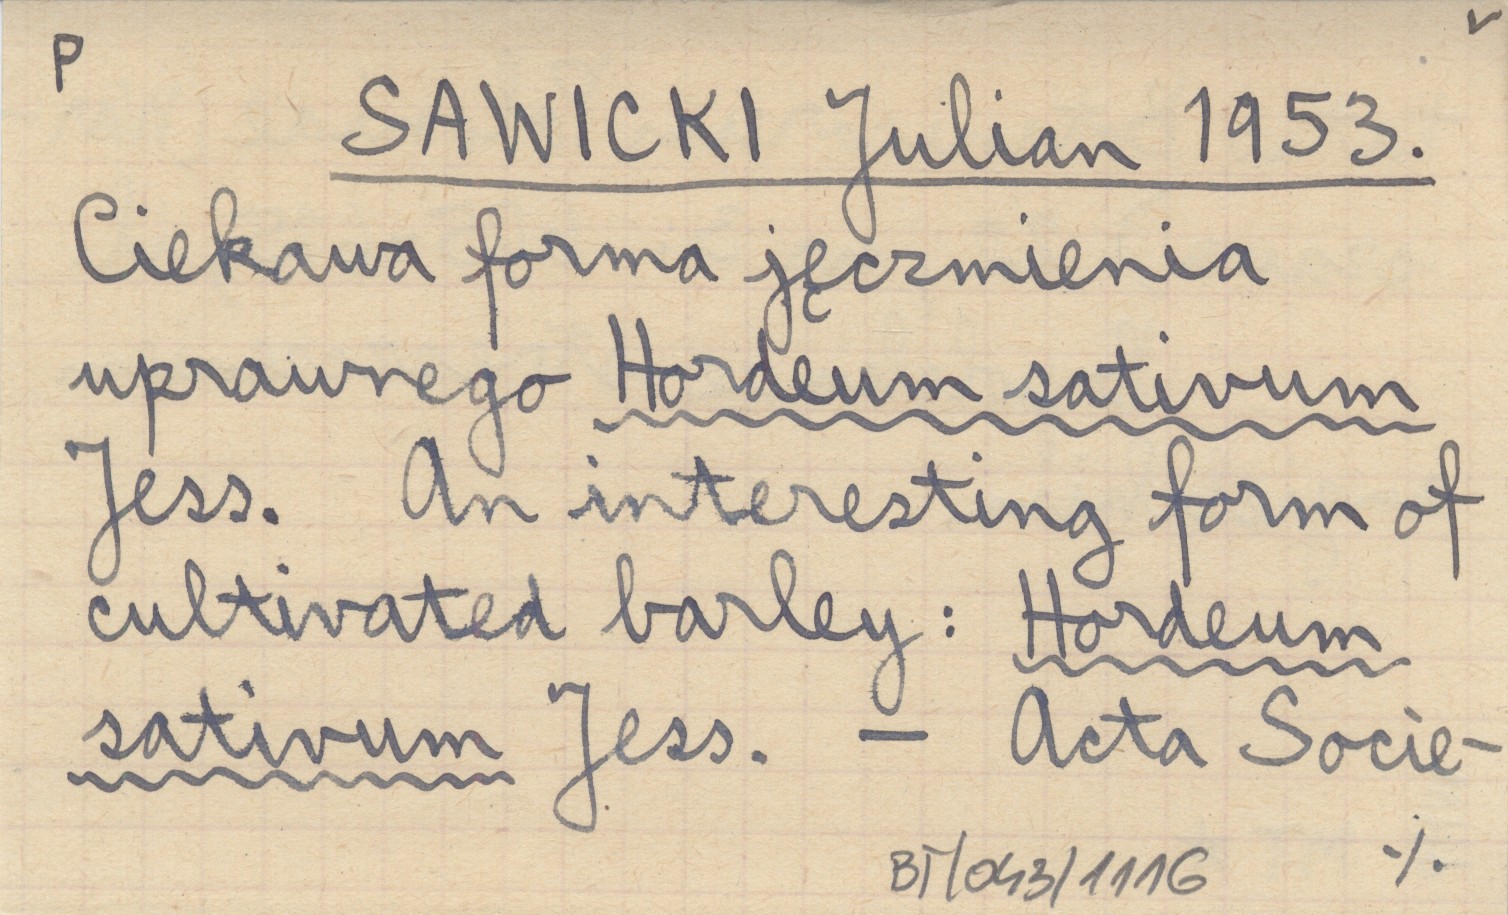 P
SAWICKI Julian 1953.
Ciekawa forma jęczmienia
uprawnego Hordeum sativum
Jess. An interesting form of
cultivated barley: Hordeum
sativum Jess. — Acta Socie-
BT/043/1116 ·/.